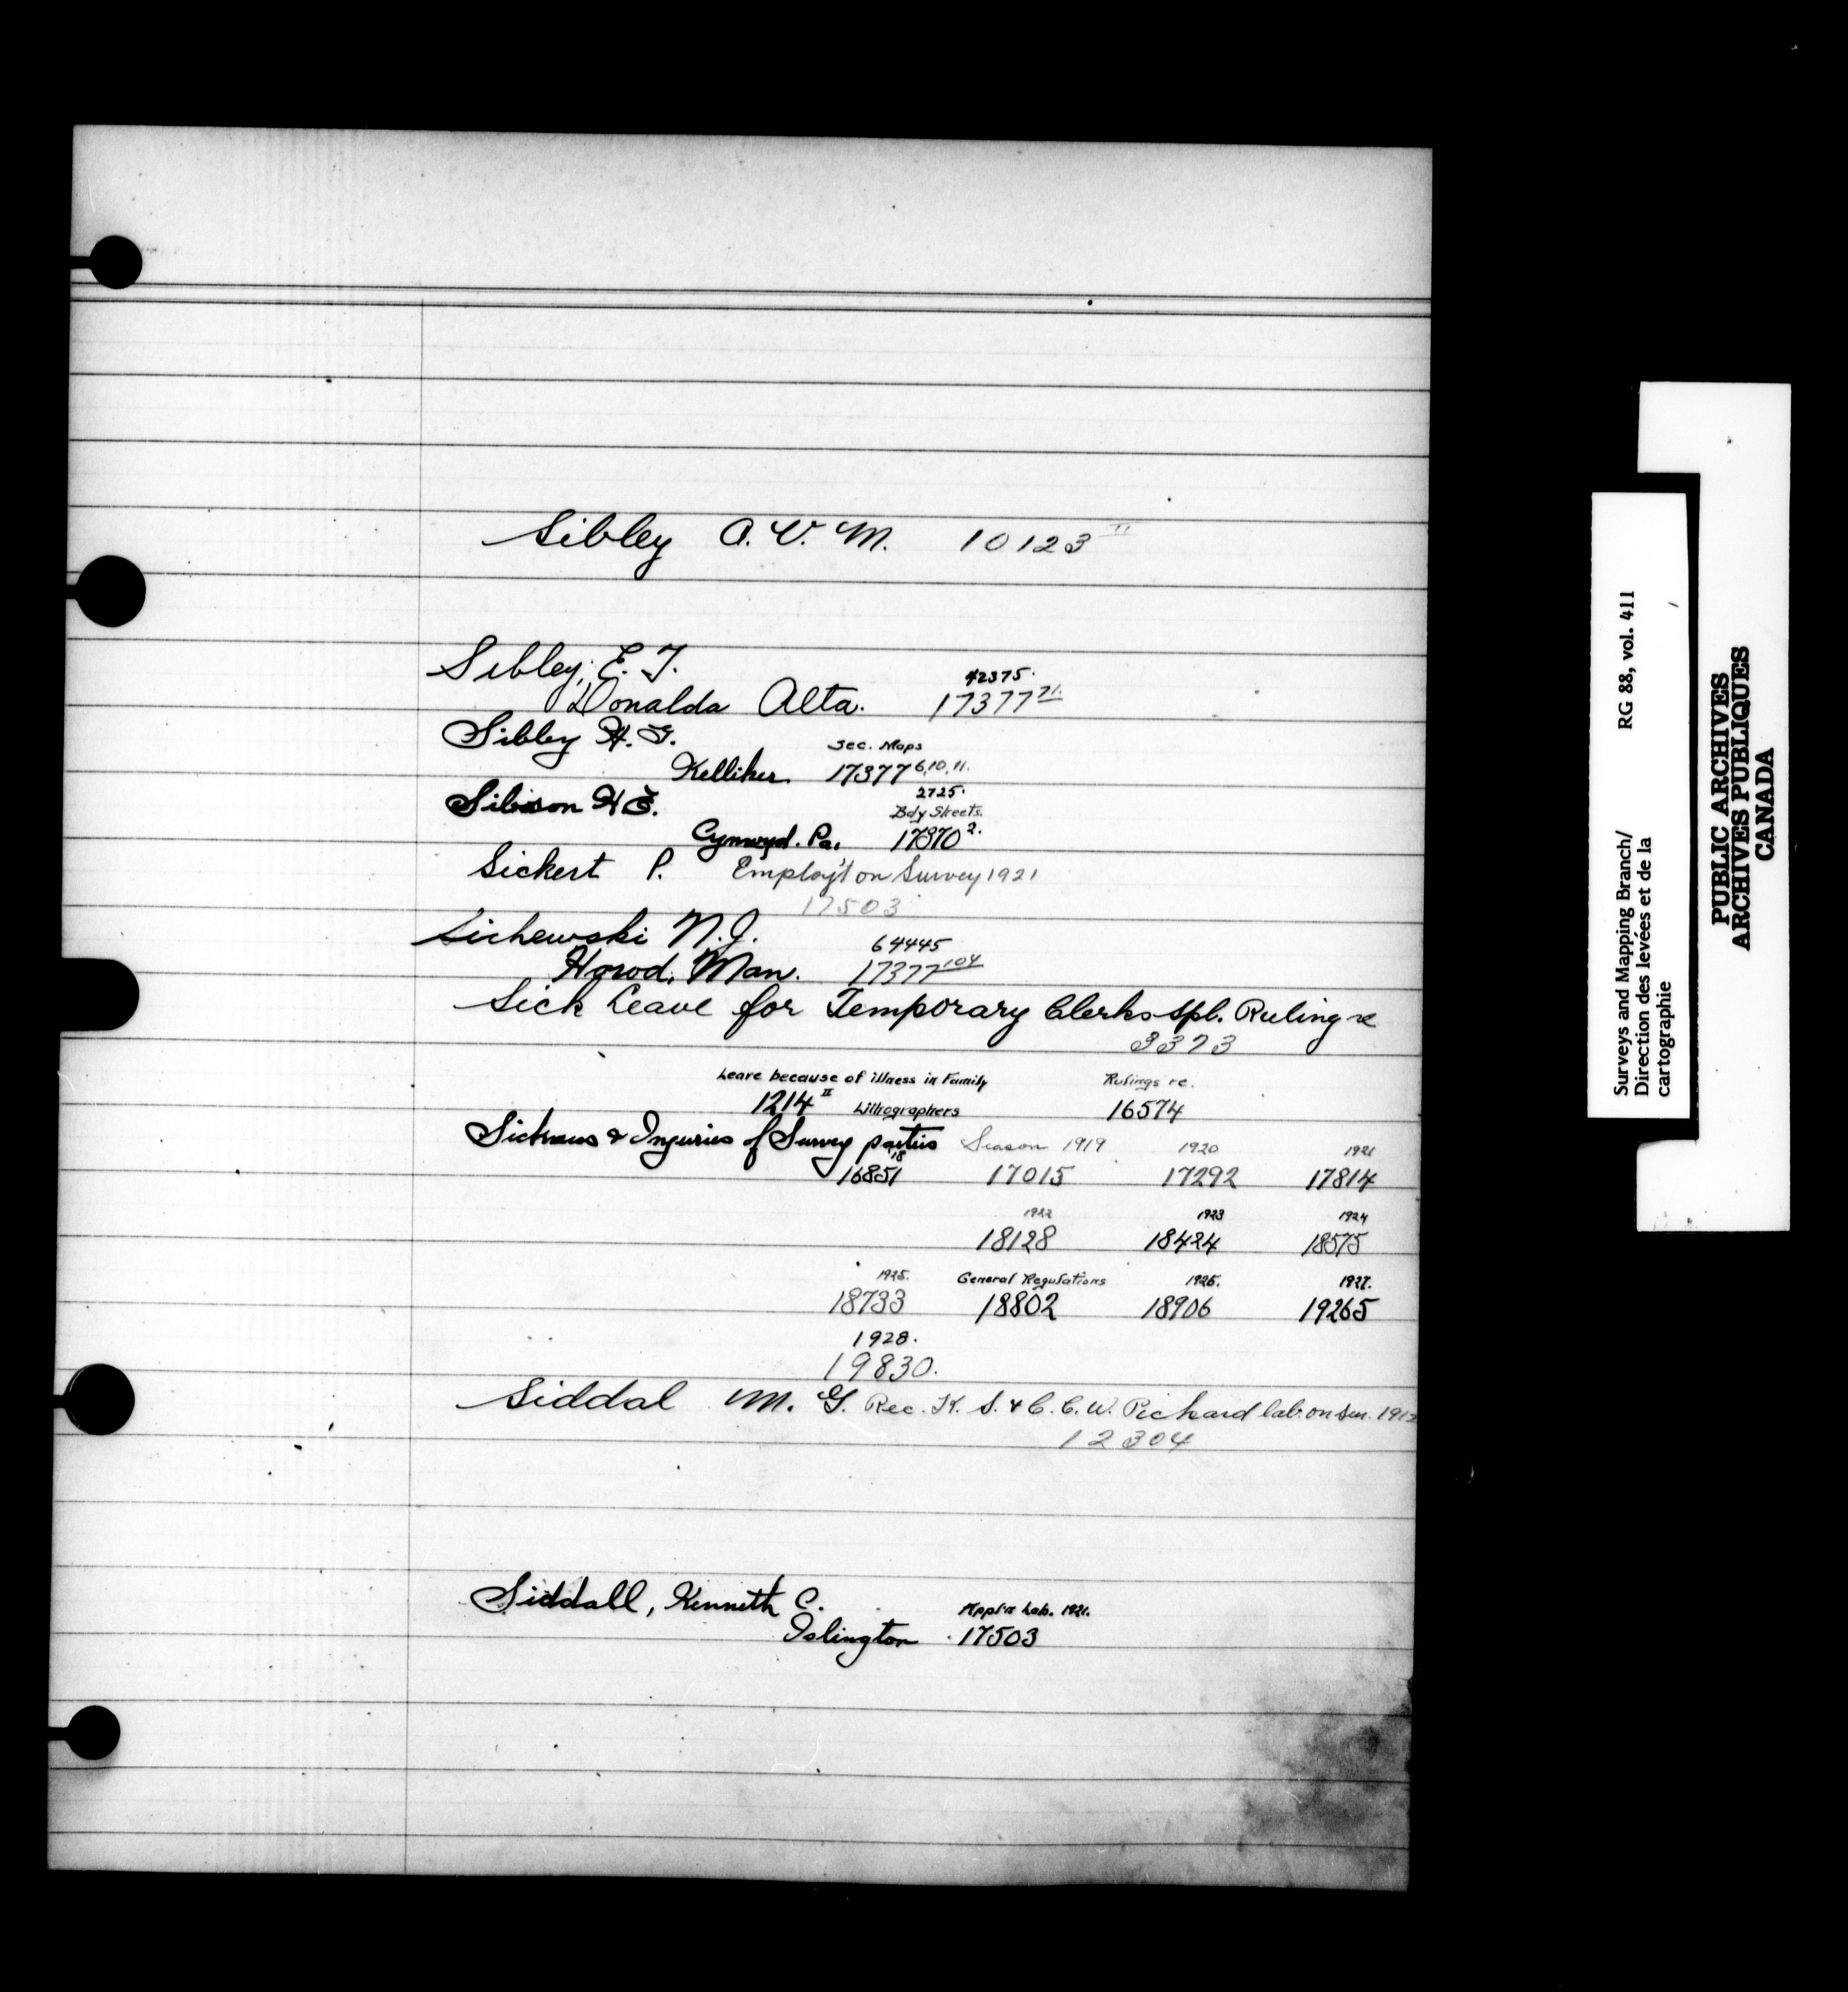 Sibley A. V. M. 10123 II
Sibley, E. T.
42375.
Donalda Alta. 17377 71.
Sibley H. G.
Sec. Maps
Kelliher 17377 6,10,11.
2725.
Sibison H E.
Bdy Sheets.
Cynwyd. Pa. 17370 2.
Sickert P. Employ't on Survey 1921
17503
Sichewski N. J.
64445
Horod, Man. 17377 104
Sick Leave for Temporary Clerks spl. Ruling re
3373
Leave because of illness in Family Rulings re.
1214 II Lithographers 16574
Sickness & Injuries of Survey parties Season 1919 1920 1921
18
16851 17015 17292 17814
1922 1923 1924
18128 18424 18575
1925. General Regulations 1926. 1927.
18733 18802 18906 19265
1928.
19830.
Siddal M. G. Rec. K. S. & C. C. W. Pickard lab. on sur. 1912
12304
Siddall, Kenneth C.
Appl'n Lab. 1921.
Islington 17503
Surveys and Mapping Branch/
Direction des levées et de la
cartographie
RG 88, vol. 411
PUBLIC ARCHIVES
ARCHIVES PUBLIQUES
CANADA